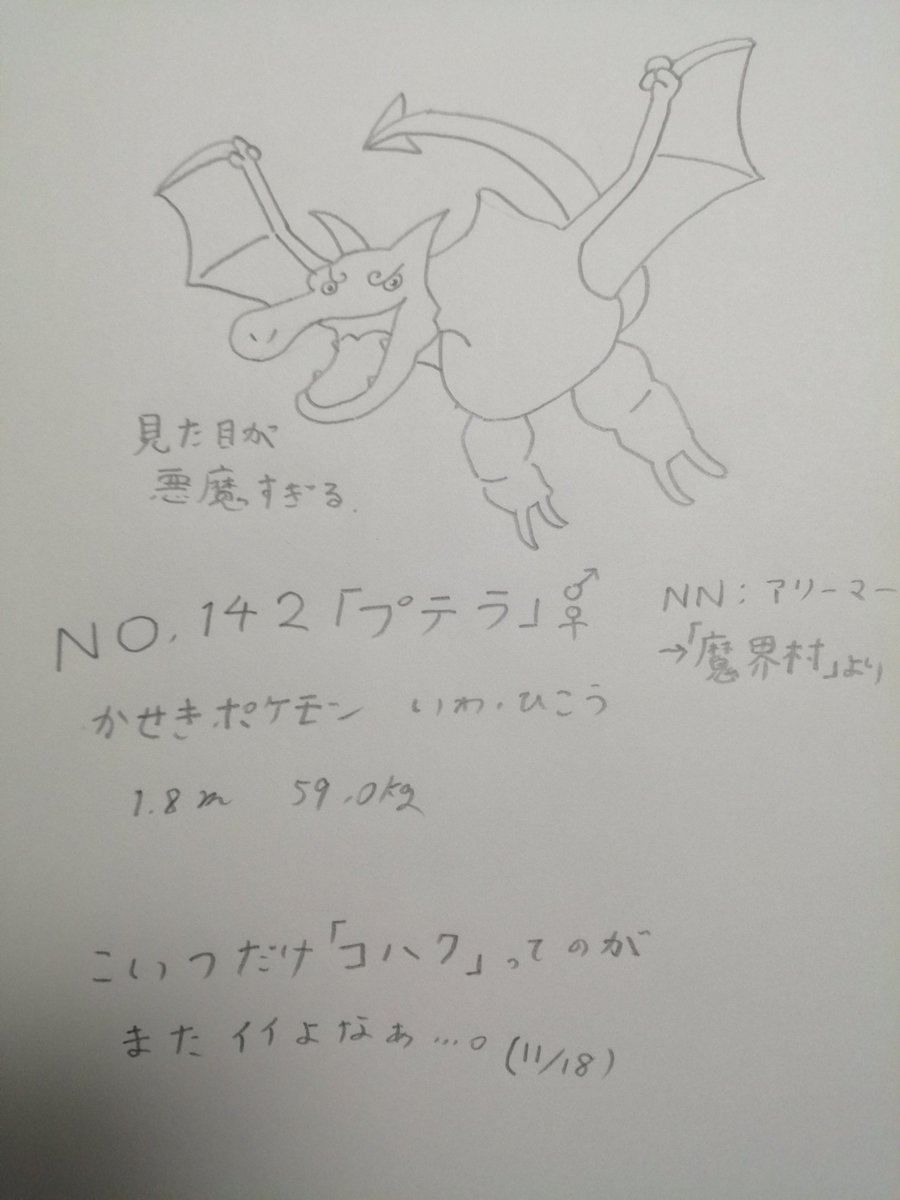 見た目が
悪魔すぎる.
NO.142「プテラ」♂♀
NN:アリーマー
→「魔界村」より
かせきポケモン いわ・ひこう
1.8m 59.0kg
こいつだけ「コハク」ってのが
またイイよなぁ…。(11/18)